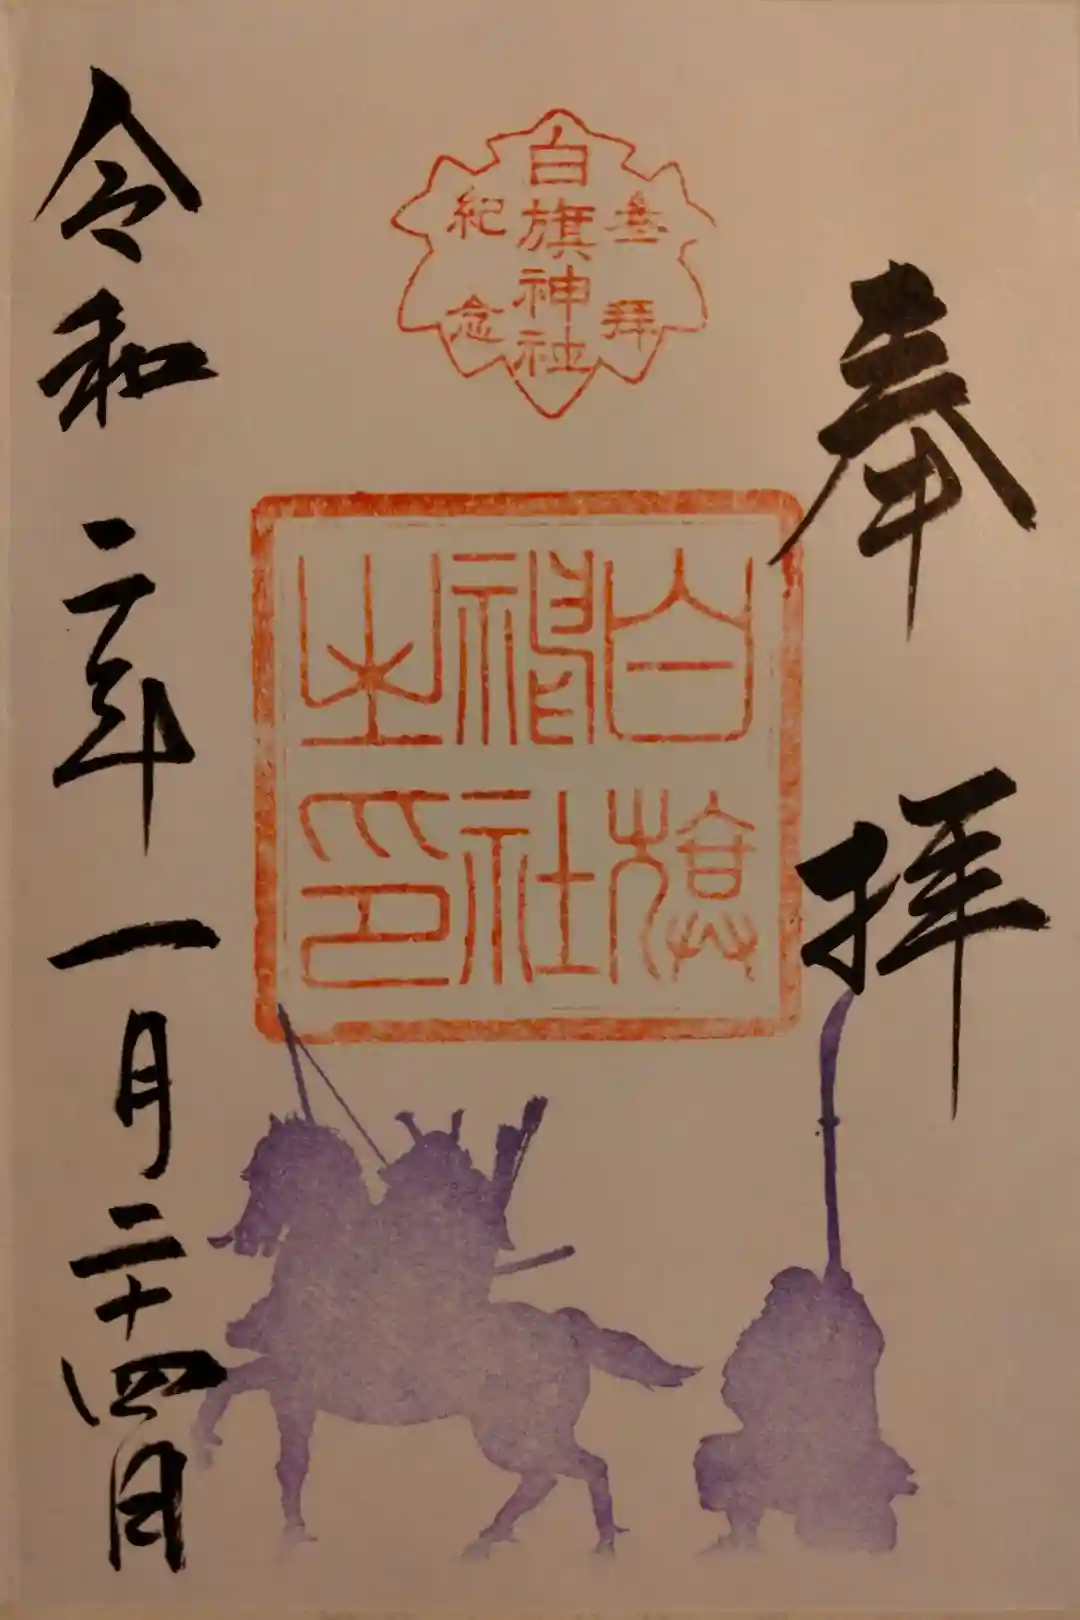 奉拝
参拝
白旗神社
紀念
白旗
神社
之印
令和二年一月二十四日